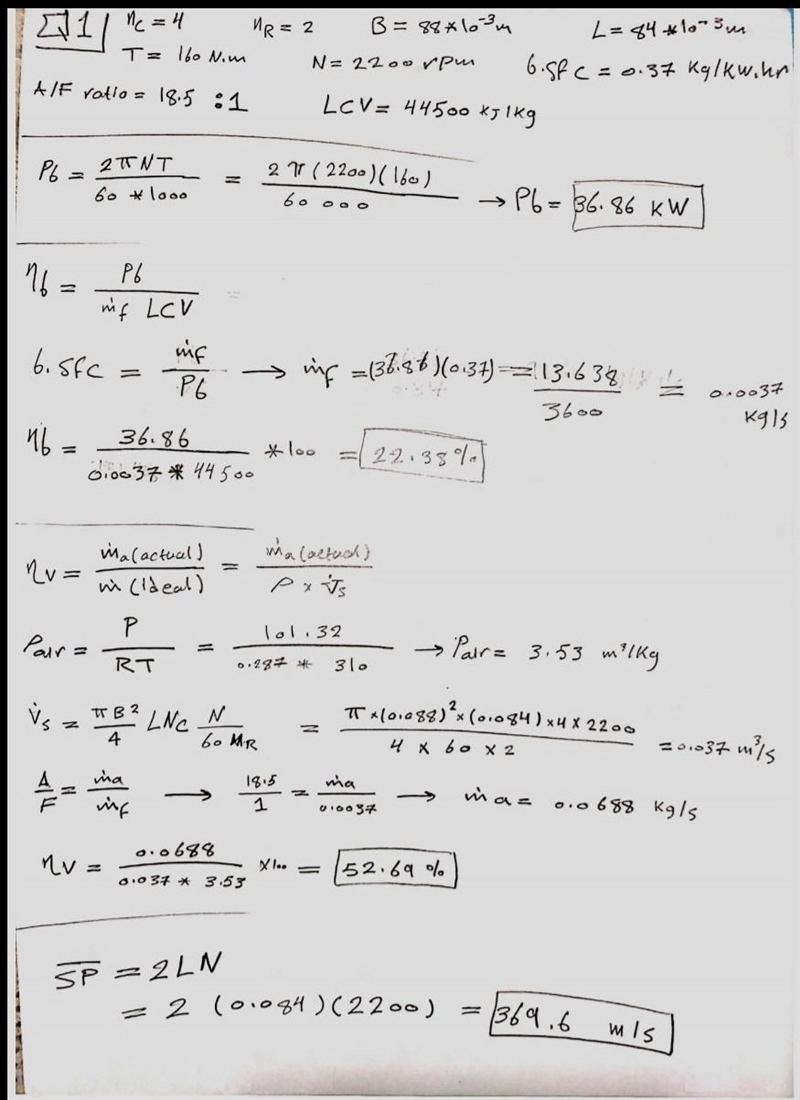 Q1 ηc = 4 ηR = 2 B = 88*10⁻³m L = 84*10⁻³m
T = 160 N.m N = 2200 rpm b.sfc = 0.37 Kg/Kw.hr
A/F ratio = 18.5 : 1 LCV = 44500 KJ/Kg
Pb = 2πNT / 60 * 1000 = 2π(2200)(160) / 60 000 → Pb = 36.86 KW
ηb = Pb / ṁf LCV
b.sfc = ṁf / Pb → ṁf = (36.86)(0.37) = 13.638 / 3600 = 0.0037 Kg/s
ηb = 36.86 / 0.0037 * 44500 * 100 = 22.38 %
ηv = ṁa(actual) / ṁ(Ideal) = ṁa(actual) / ρ × V̇s
ρair = P / RT = 101.32 / 0.287 * 310 → ρair = 3.53 m³/Kg
V̇s = πB² / 4 LNc N / 60 MR = π×(0.088)²×(0.084)×4×2200 / 4 × 60 × 2 = 0.037 m³/s
A/F = ṁa / ṁf → 18.5 / 1 = ṁa / 0.0037 → ṁa = 0.0688 Kg/s
ηv = 0.0688 / 0.037 * 3.53 ×100 = 52.69 %
S̅P̅ = 2LN
= 2 (0.084)(2200) = 369.6 m/s